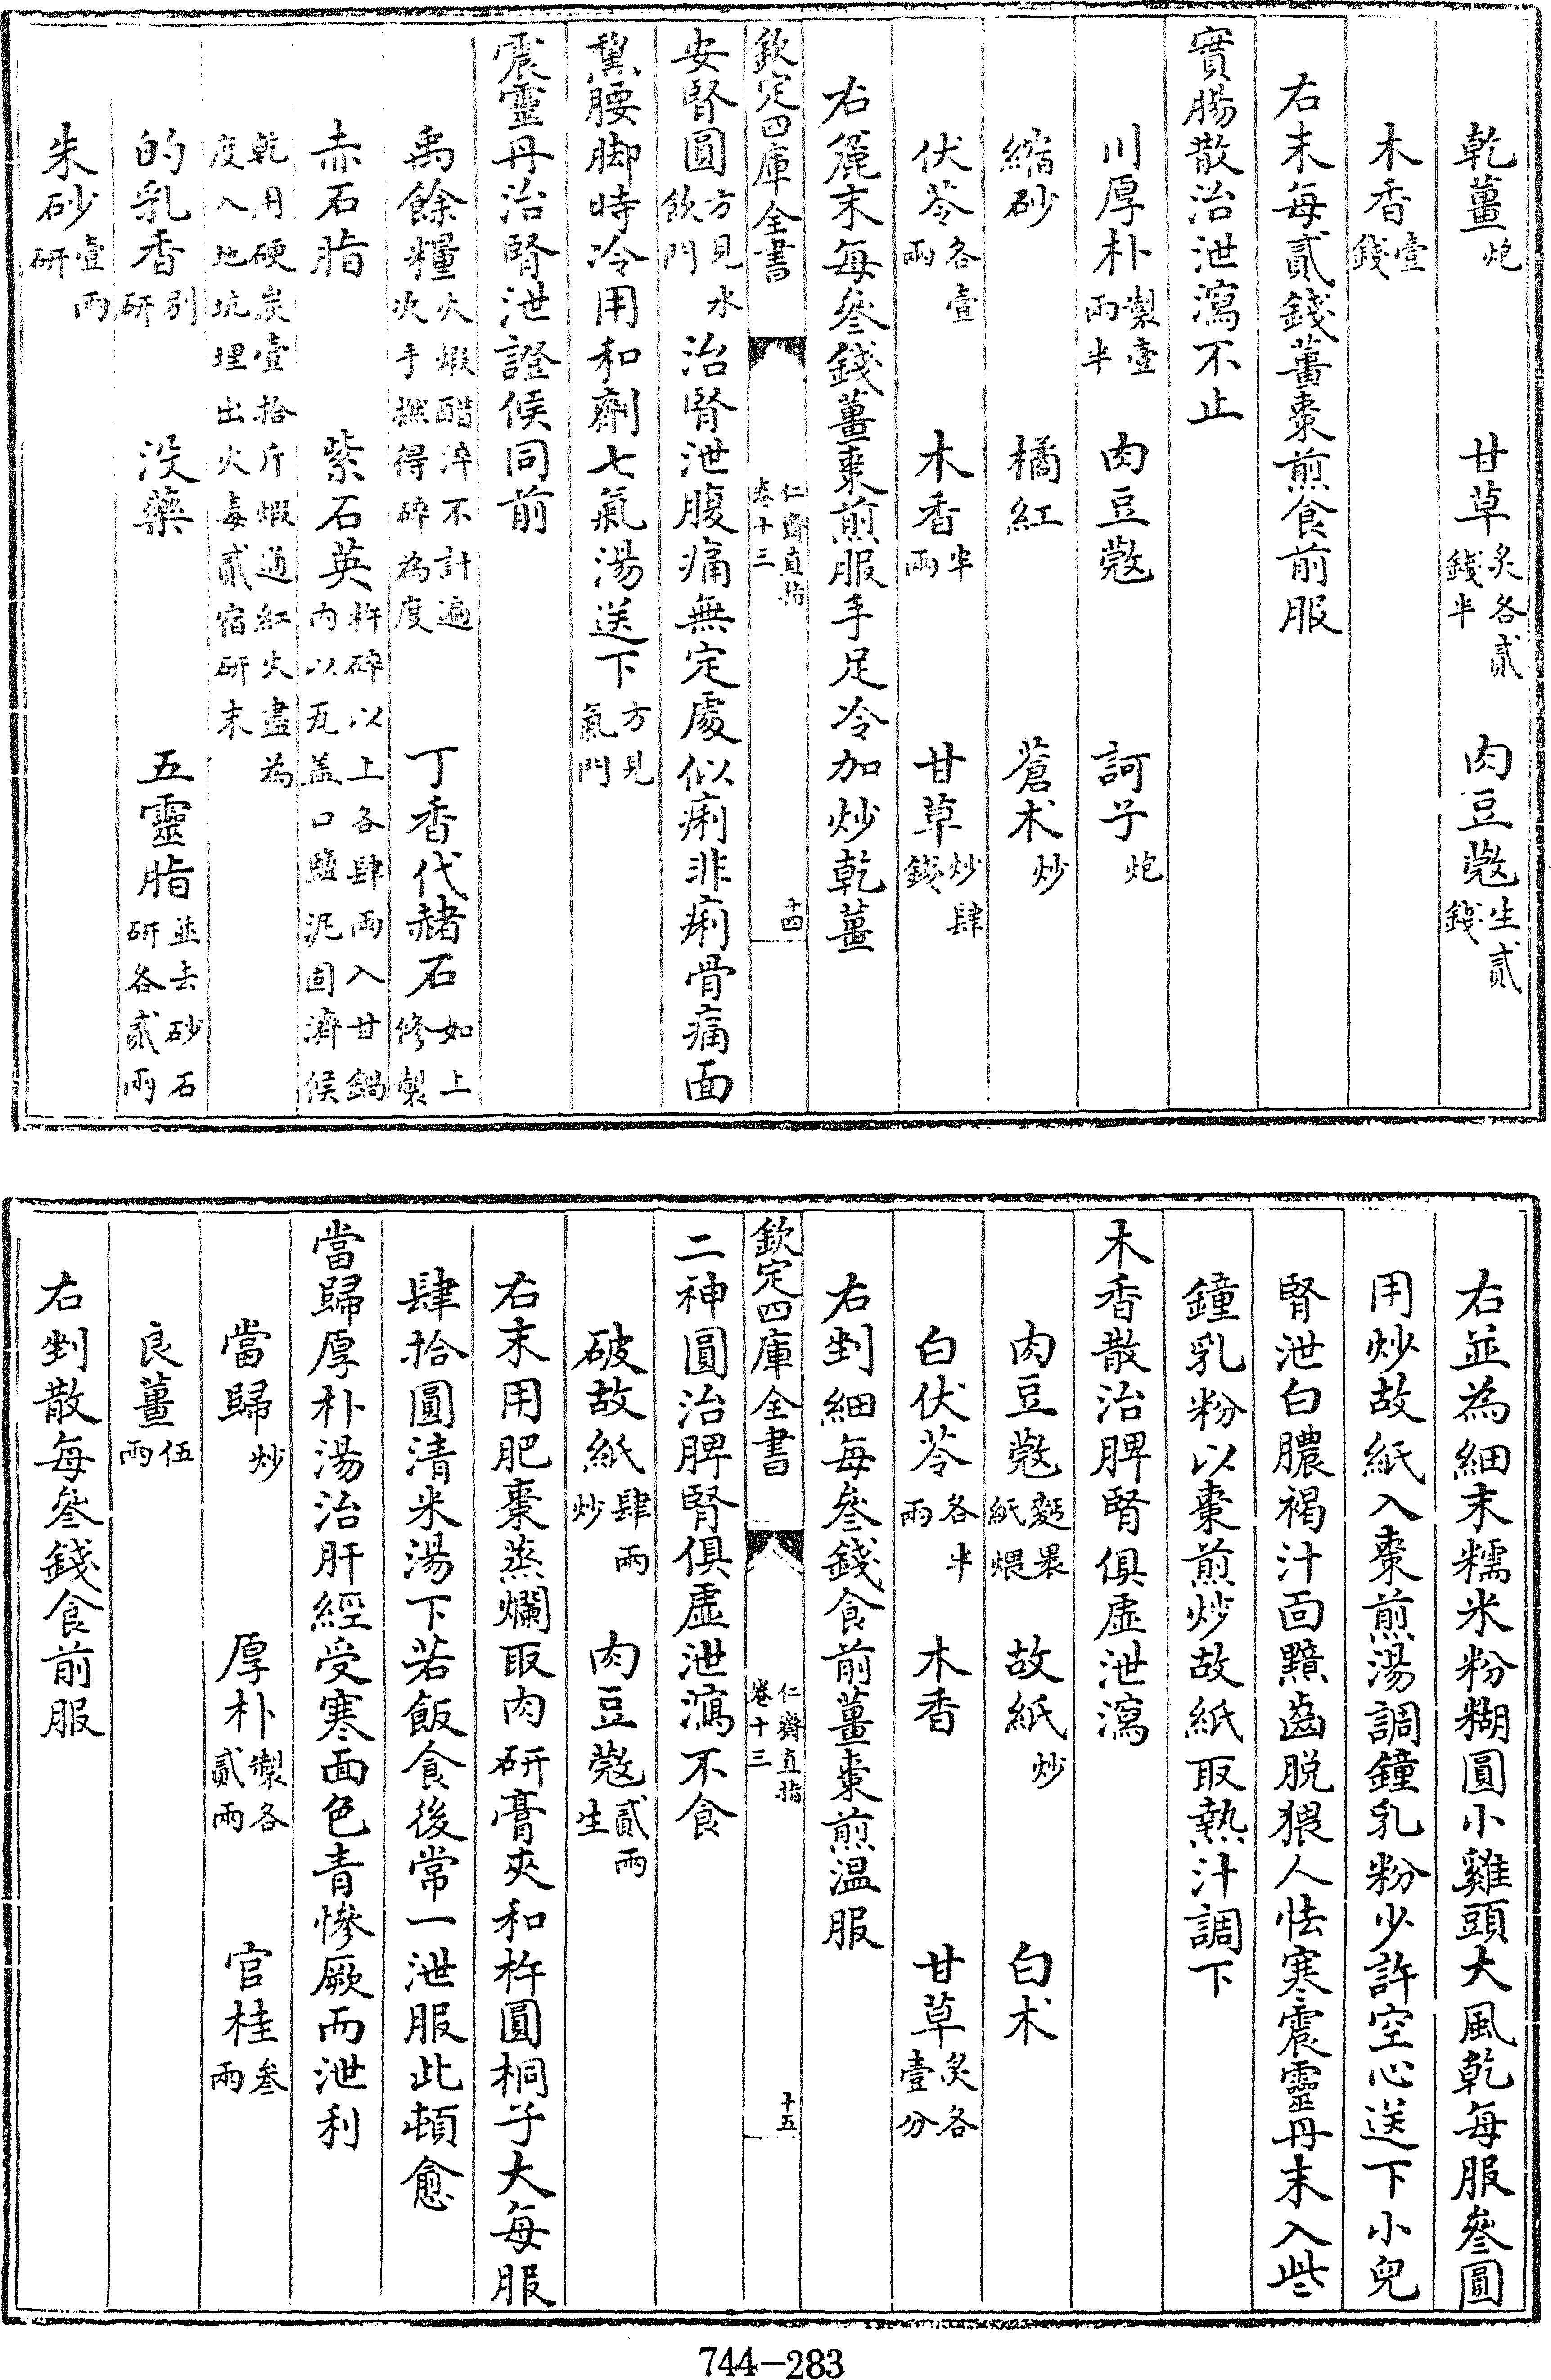 乾薑炮　甘草炙各貳錢半　肉豆蔻生貳錢
木香壹錢
右末每貳錢薑棗煎食前服
實腸散治泄瀉不止
川厚朴製壹兩半　肉豆蔻　訶子炮
縮砂　橘紅　蒼术炒
伏苓各壹兩　木香半兩　甘草炒肆錢
右麄末每叄錢薑棗煎服手足冷加炒乾薑
欽定四庫全書　仁齋直指卷十三　十四
安腎圓方見水飲門治腎泄腹痛無定處似痢非痢骨痛面
黧腰脚時冷用和劑七氣湯送下方見氣門
震靈丹治腎泄證候同前
禹餘糧火煆醋淬不計遍次手撚得碎為度　丁香代赭石如上修製
赤石脂　紫石英杵碎以上各肆兩入甘鍋内以瓦盖口鹽泥固濟候
乾用硬炭壹拾斤煆通紅火盡為度入地坑埋出火毒貳宿研末
的乳香别研　没藥　五靈脂並去砂石研各貳兩
朱砂壹兩研
右並為細末糯米粉糊圓小雞頭大風乾每服叄圓
用炒故紙入棗煎湯調鐘乳粉少許空心送下小兒
腎泄白膿褐汁面黯齒脱猥人怯寒震靈丹末入些
鐘乳粉以棗煎炒故紙取熱汁調下
木香散治脾腎俱虚泄瀉
肉豆蔻麪裹紙煨　故紙炒　白术
白伏苓各半兩　木香　甘草炙各壹分
右剉細每叄錢食前薑棗煎温服
欽定四庫全書　仁齋直指卷十三　十五
二神圓治脾腎俱虚泄瀉不食
破故紙肆兩炒　肉豆蔻貳兩生
右末用肥棗蒸爛取肉研膏夾和杵圓桐子大每服
肆拾圓清米湯下若飯食後常一泄服此頓愈
當歸厚朴湯治肝經受寒面色青慘厥而泄利
當歸炒　厚朴製各貳兩　官桂叄兩
良薑伍兩
右剉散每叄錢食前服
744-283